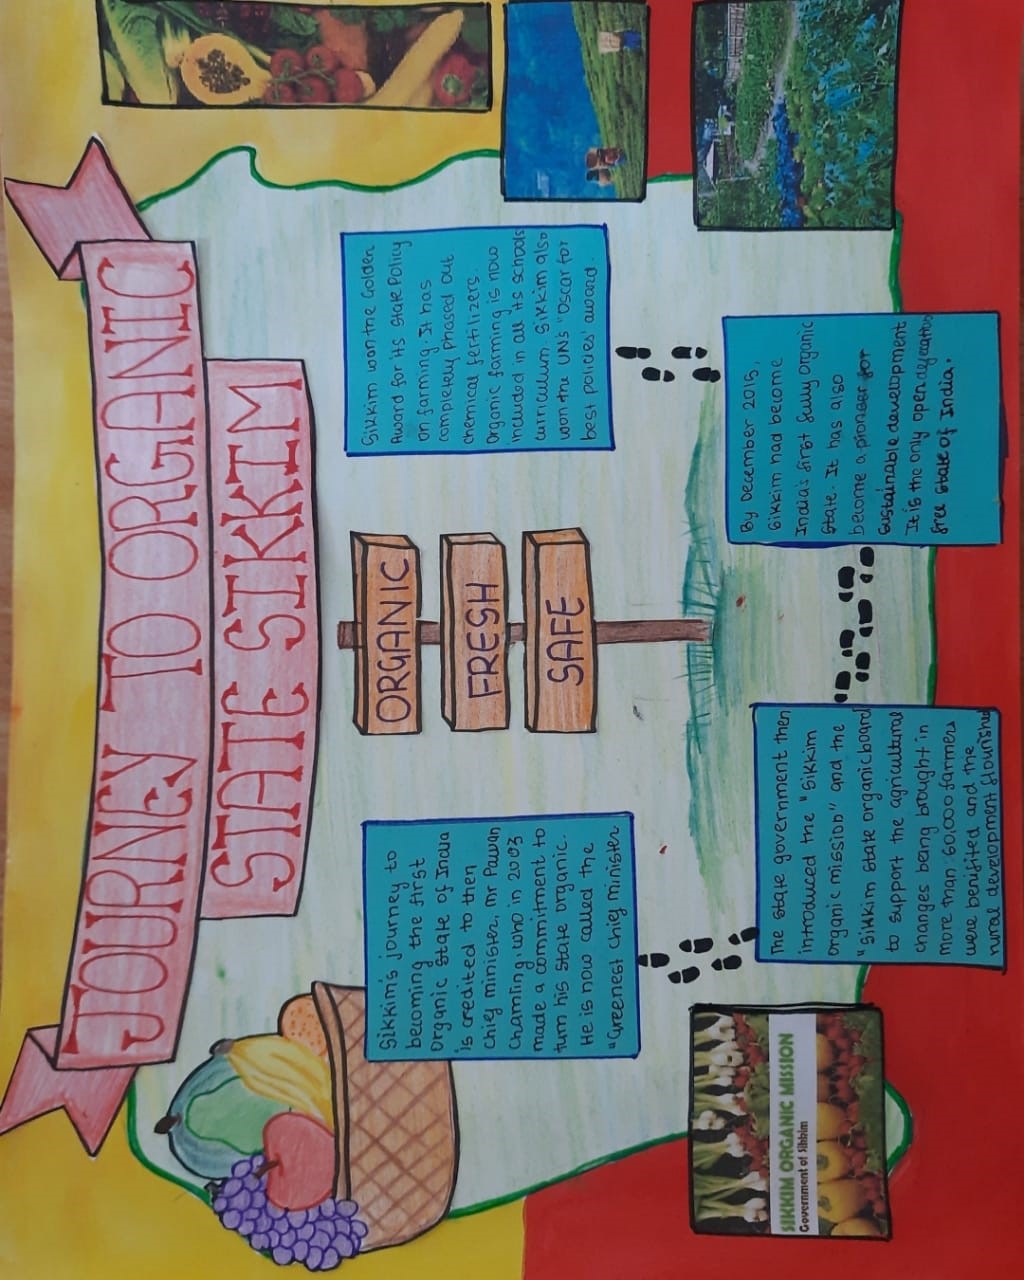 JOURNEY TO ORGANIC
STATE SIKKIM
ORGANIC
FRESH
SAFE
Sikkim's journey to
becoming the first
Organic State of India
is credited to then
chief minister, Mr Pawan
Chamling, who in 2003
made a commitment to
turn his state organic.
He is now called the
"Greenest chief minister
The state government then
introduced the "Sikkim
Organic mission" and the
"Sikkim state organic board
to support the agricultural
changes being brought in
more than 60,000 farmers
were benifited and the
rural development flourished
By December 2015,
Sikkim had become
India's first fully organic
state. It has also
become a pioneer for
sustainable development
It is the only open defecation
free state of India.
Sikkim won the Golden
Award for its State Policy
on farming. It has
completely phased out
chemical fertilizers.
Organic farming is now
included in all its schools
curriculum. Sikkim also
won the UNs "Oscar for
best policies' award.
SIKKIM ORGANIC MISSION
Government of Sikkim